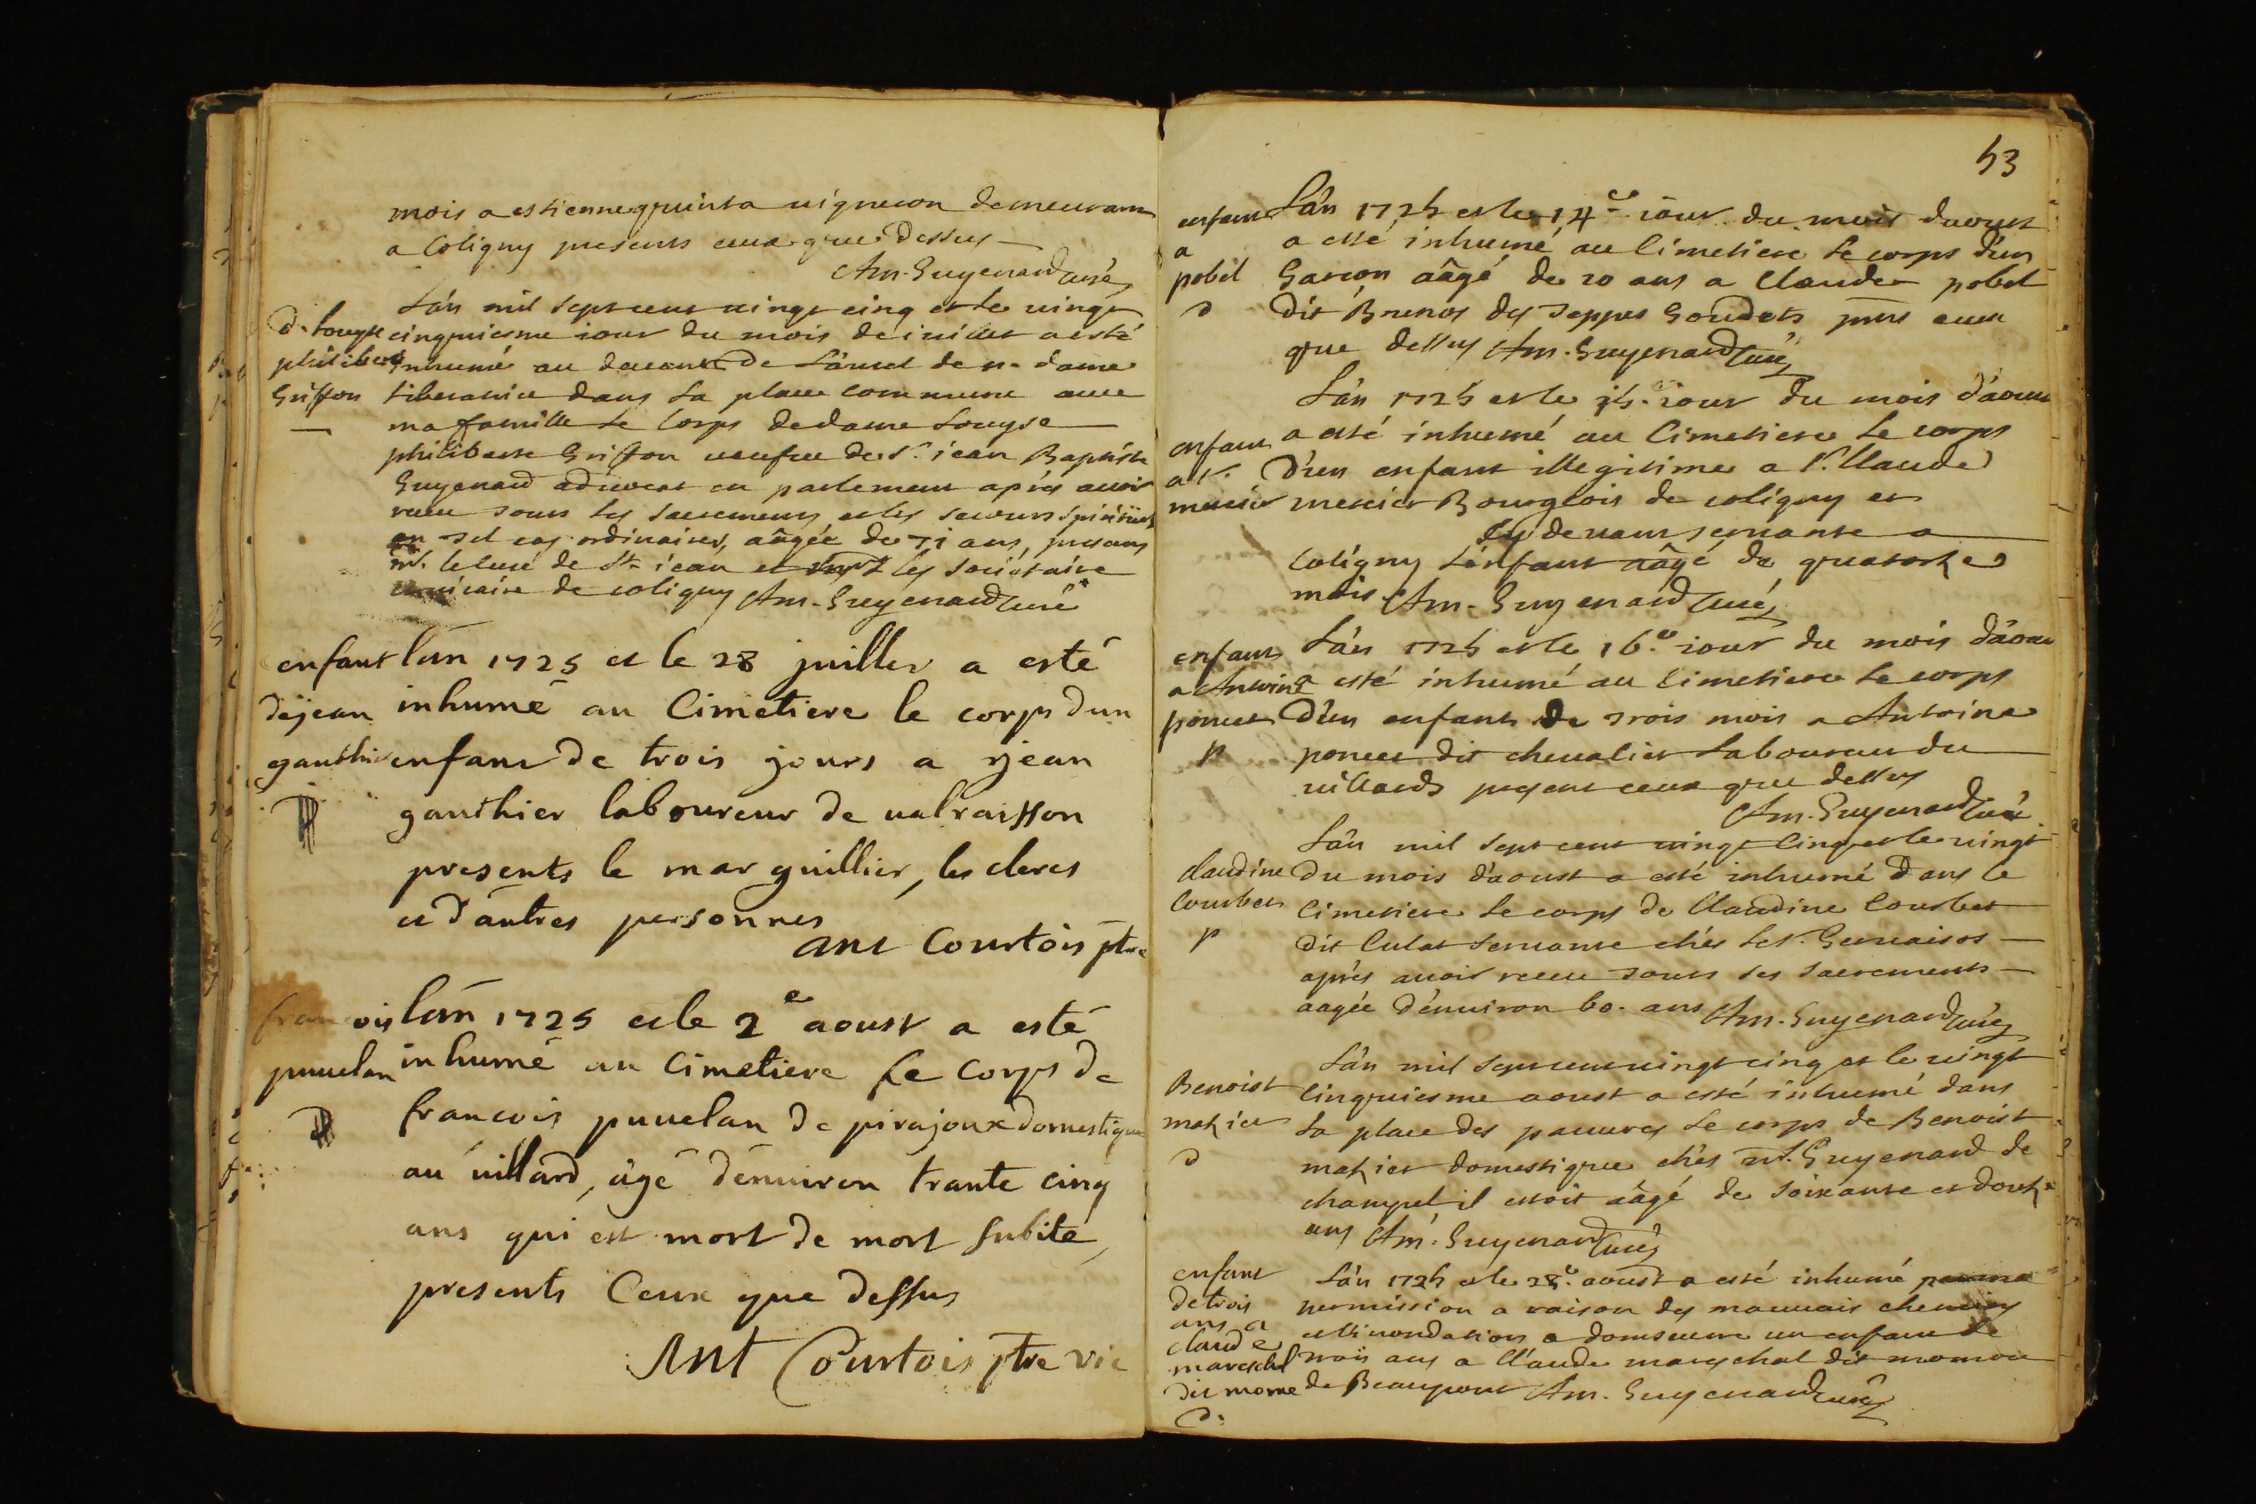 mois a estienne quinta uigneron demeurant
a Coligny presents ceux que dessus
Am. Guyenard curé
d. Louyse
philiberte
Griffon
L'an mil sept cent uingt cinq et le uingt
cinquiesme iour du mois de iuillet a esté
inhumé au deuant de l'autel de n. dame
liberatrice dans la place commune auec
ma famille le Corps de dame Louyse
philiberte Griffon ueufue de Sr. iean Baptiste
Guyenard aduocat en parlement aprés auoir
receu tous les sacremens et les secours spirituels
en tel cas ordinaires, aâgée de 71 ans, presens
mr. le curé de St iean et les Societaire
uicaire de coligny Am. Guyenard curé
enfant
de jean
gauthier
l'an 1725 et le 28 juillet a esté
inhumé au Cimetiere le corps dun
enfant de trois jours a jean
gauthier laboureur de ualraisson
presents le marguillier, les clercs
et d'autres personnes
Ant Courtois ptre
francois
puuelan
l'an 1725 et le 2e aoust a esté
inhumé au Cimetiere le Corps de
francois puuelan de pirajoux domestique
au uillard, âgé d'enuiron trante cinq
ans qui est mort de mort subite,
presents Ceux que dessus
Ant Courtois ptre vic
53
enfant
a
pobel
d
L'an 1725 et le 14e iour du mois daoust
a esté inhumé au Cimetiere le corps d'un
Garcon aâgé de 10 ans a Claude pobel
dit Brunos des teppes Goudets pnts ceux
que dessus Am. Guyenard curé
enfant
a Sr.
mercier
L'an 1725 et le 15. iour du mois d'aoust
a esté inhumé au Cimetiere le corps
d'un enfant illegitime a Sr. Claude
mercier Bourgeois de coligny et
cy deuant seruante a
Coligny l'enfant aâgé de quatorze
mois Am. Guyenard curé
enfant
a Antoine
poncet
p
L'an 1725 et le 16.e iour du mois d'aoust
a esté inhumé au Cimetiere le corps
d'un enfant de trois mois a Antoine
poncet dit cheualier laboureur du
uillard present ceux que dessus
Am. Guyenard curé
claudine
Courbet
p
L'an mil sept cent uingt Cinq et le uingt
du mois d'aoust a esté inhumé dans le
Cimetiere le corps de Claudine Courbet
dit Culat seruante chés le Sr. Geruaisos
aprés auoir receu tous ses sacrements
aagée d'enuiron 60. ans Am. Guyenard curé
Benoist
mazier
d
L'an mil sept cent uingt cinq et le uingt
Cinquiesme aoust a esté inhumé dans
la place des pauures le corps de Benoist
mazier domestique chés mr. Guyenard de
champel il estoit aâgé de soixante et douze
ans Am. Guyenard curé
enfant
de trois
ans a
claude
mareschal
dit mome
d.
L'an 1725 et le 28.e aoust a esté inhumé par ma
permission a raison des mauuais chemins
et l'inondation a domseurre un enfant de
trois ans a Claude mareschal dit momou
de Beaupont Am. Guyenard curé